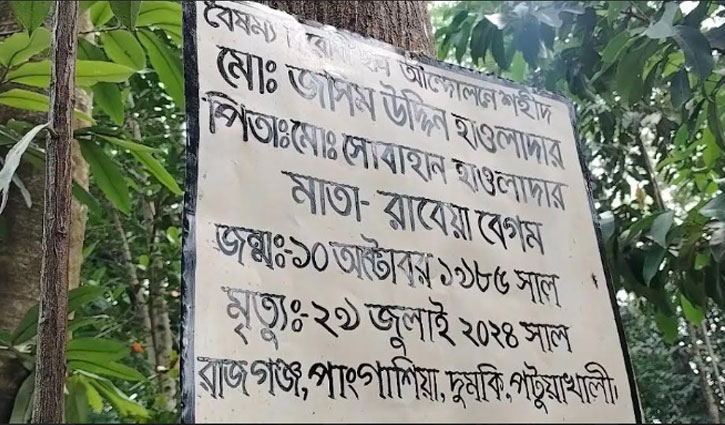 বৈষম্য আন্দোলনে শহীদ
মোঃ জসিম উদ্দিন হাওলাদার
পিতাঃমোঃ সোবাহান হাওলাদার
মাতা- রাবেয়া বেগম
জন্মঃ-১০ অক্টোবর ১৯৮৫ সাল
মৃত্যুঃ-২৯ জুলাই ২০২৪ সাল
রাজগঞ্জ, পাংগাশিয়া, দুমকি, পটুয়াখালী।